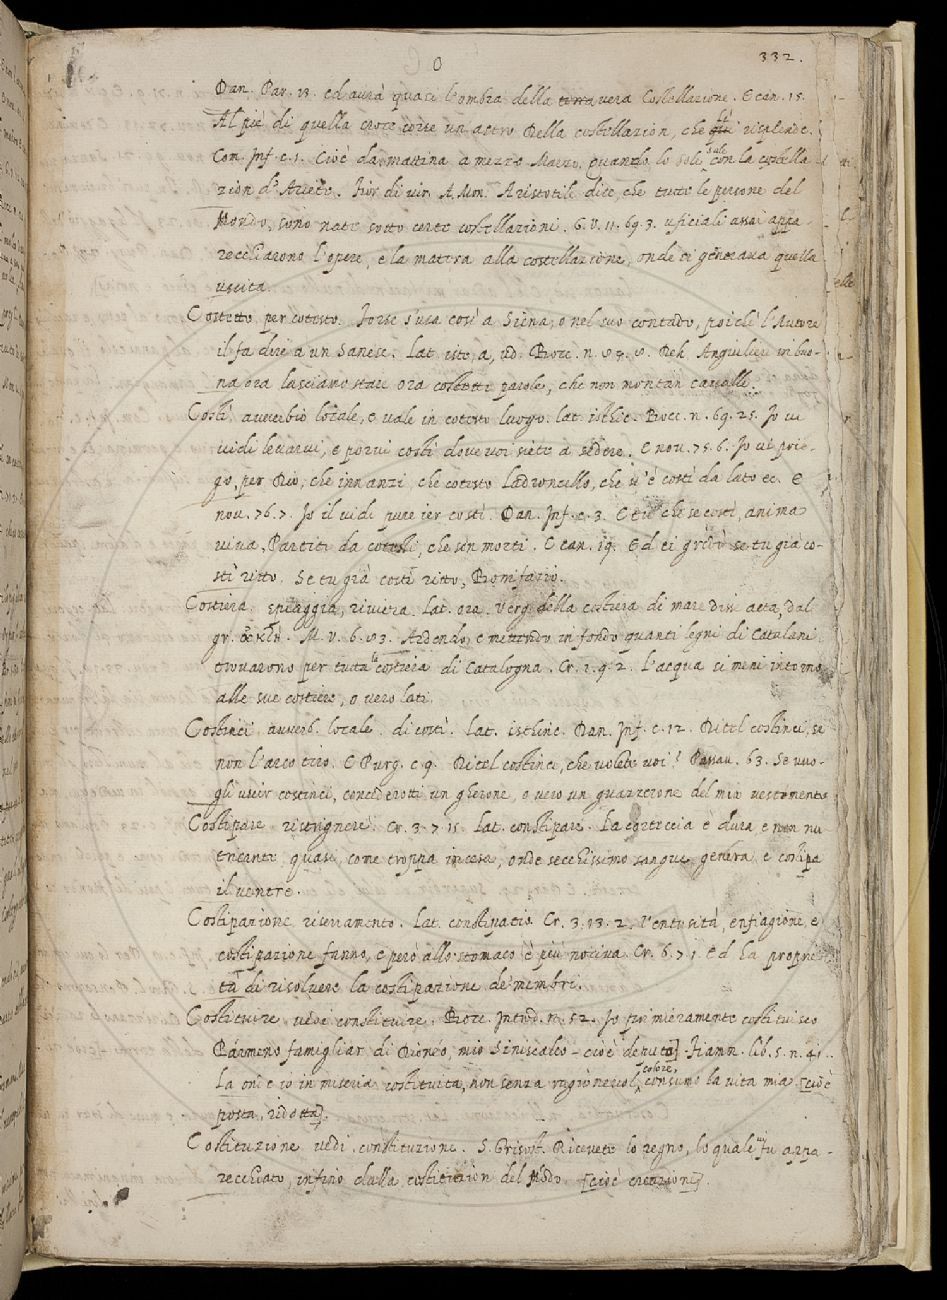 O
332.
Dan. Par. 13. ed aurà quasi l'ombra della terra vera Costellazione. E can. 15.
Al piè di quella croce corse un astro Della costellazion, che lì risplende.
Com. Inf. c. 1. Cioè da mattina a mezzo Marzo, quando lo sole sale con la costella
zion d'Ariete. Fior di vir. A. Mon. Aristotile dice, che tutte le persone del
Mondo, sono nate sotto certe costellazioni. G. V. 11. 69. 3. uficiali assai appa-
recchiarono l'opere, e la matera alla costellazione, onde si generava quella
uscita.
Costetto per cotesto. Forse s'usa così a Siena, o nel suo contado, poichè l'Autore
il fa dire a un Sanese. Lat. iste, a, ud. Bocc. n. 84. 8. Deh Angiulieri in buo-
na ora lasciamo stare ora costette parole, che non montan cavalle.
Costì avverbio locale, e vale in cotesto luogo. lat. isthic. Bocc. n. 69. 25. Io vi
vidi levarvi, e porvi costì dove voi siete a sedere. E nov. 75. 6. Io vi prie-
go, per Dio, che innanzi che cotesto ladroncello, che v'è costì da lato ec. E
nov. 76. 7. Io il vidi pure ier costì. Dan. Inf. c. 3. E tu che se costì, anima
viva, Partiti da cotesti, che son morti. E can. 19. Ed ei gridò se tu già co-
stì ritto, Se tu già costì ritto, Bonifazio.
Costiera spiaggia, riviera. Lat. ora. Verg. della costiera di mare disse acta, dal
gr. ἀκτή. M. V. 6. 83. Ardendo, e mettendo in fondo quanti legni di Catalani
trovarono per tutta la costiera di Catalogna. Cr. 2. 9. 2. l'acqua si meni intorno
alle sue costiere, o vero lati.
Costinci avverb. locale. di costì. Lat. isthinc. Dan. Inf. c. 12. Ditel costinci, se
non l'arco tiro. E Purg. c. 9. Ditel costinci, che volete voi? Passav. 63. Se vuo-
gli uscir costinci, concederotti un gherone, o vero un guazzerone del mio vestimento
Costipare ristrignere. Cr. 3. 7. 15. Lat. constipare. La corteccia è dura, e non nu-
tricante, quasi, come troppa incesa, onde secchissimo sangue genera, e costipa
il ventre.
Costipazione riserramento. Lat. constipatio Cr. 3. 13. 2. Ventusità, enfiagione, e
costipazione fanno, e però allo stomaco è più nociva. Cr. 6. 7. 1. Ed ha proprie
tà di risolvere la costipazione de' membri.
Costituire vedi constituire. Bocc. Introd. n. 52. Io primieramente costituisco
Pármeno famigliar di Dionéo, mio Siniscalco - cioè deputo] Fiamm. lib. 5. n. 41.
La onde io in miseria costituita, non senza ragionevol colore, consumo la vita mia [cioè
posta, ridotta].
Costituzione vedi. constituzione. S. Grisost. Ricevete lo regno, lo quale vi fu appa-
recchiato, infino dalla costituzion del Mōdo. [cioè creazione].